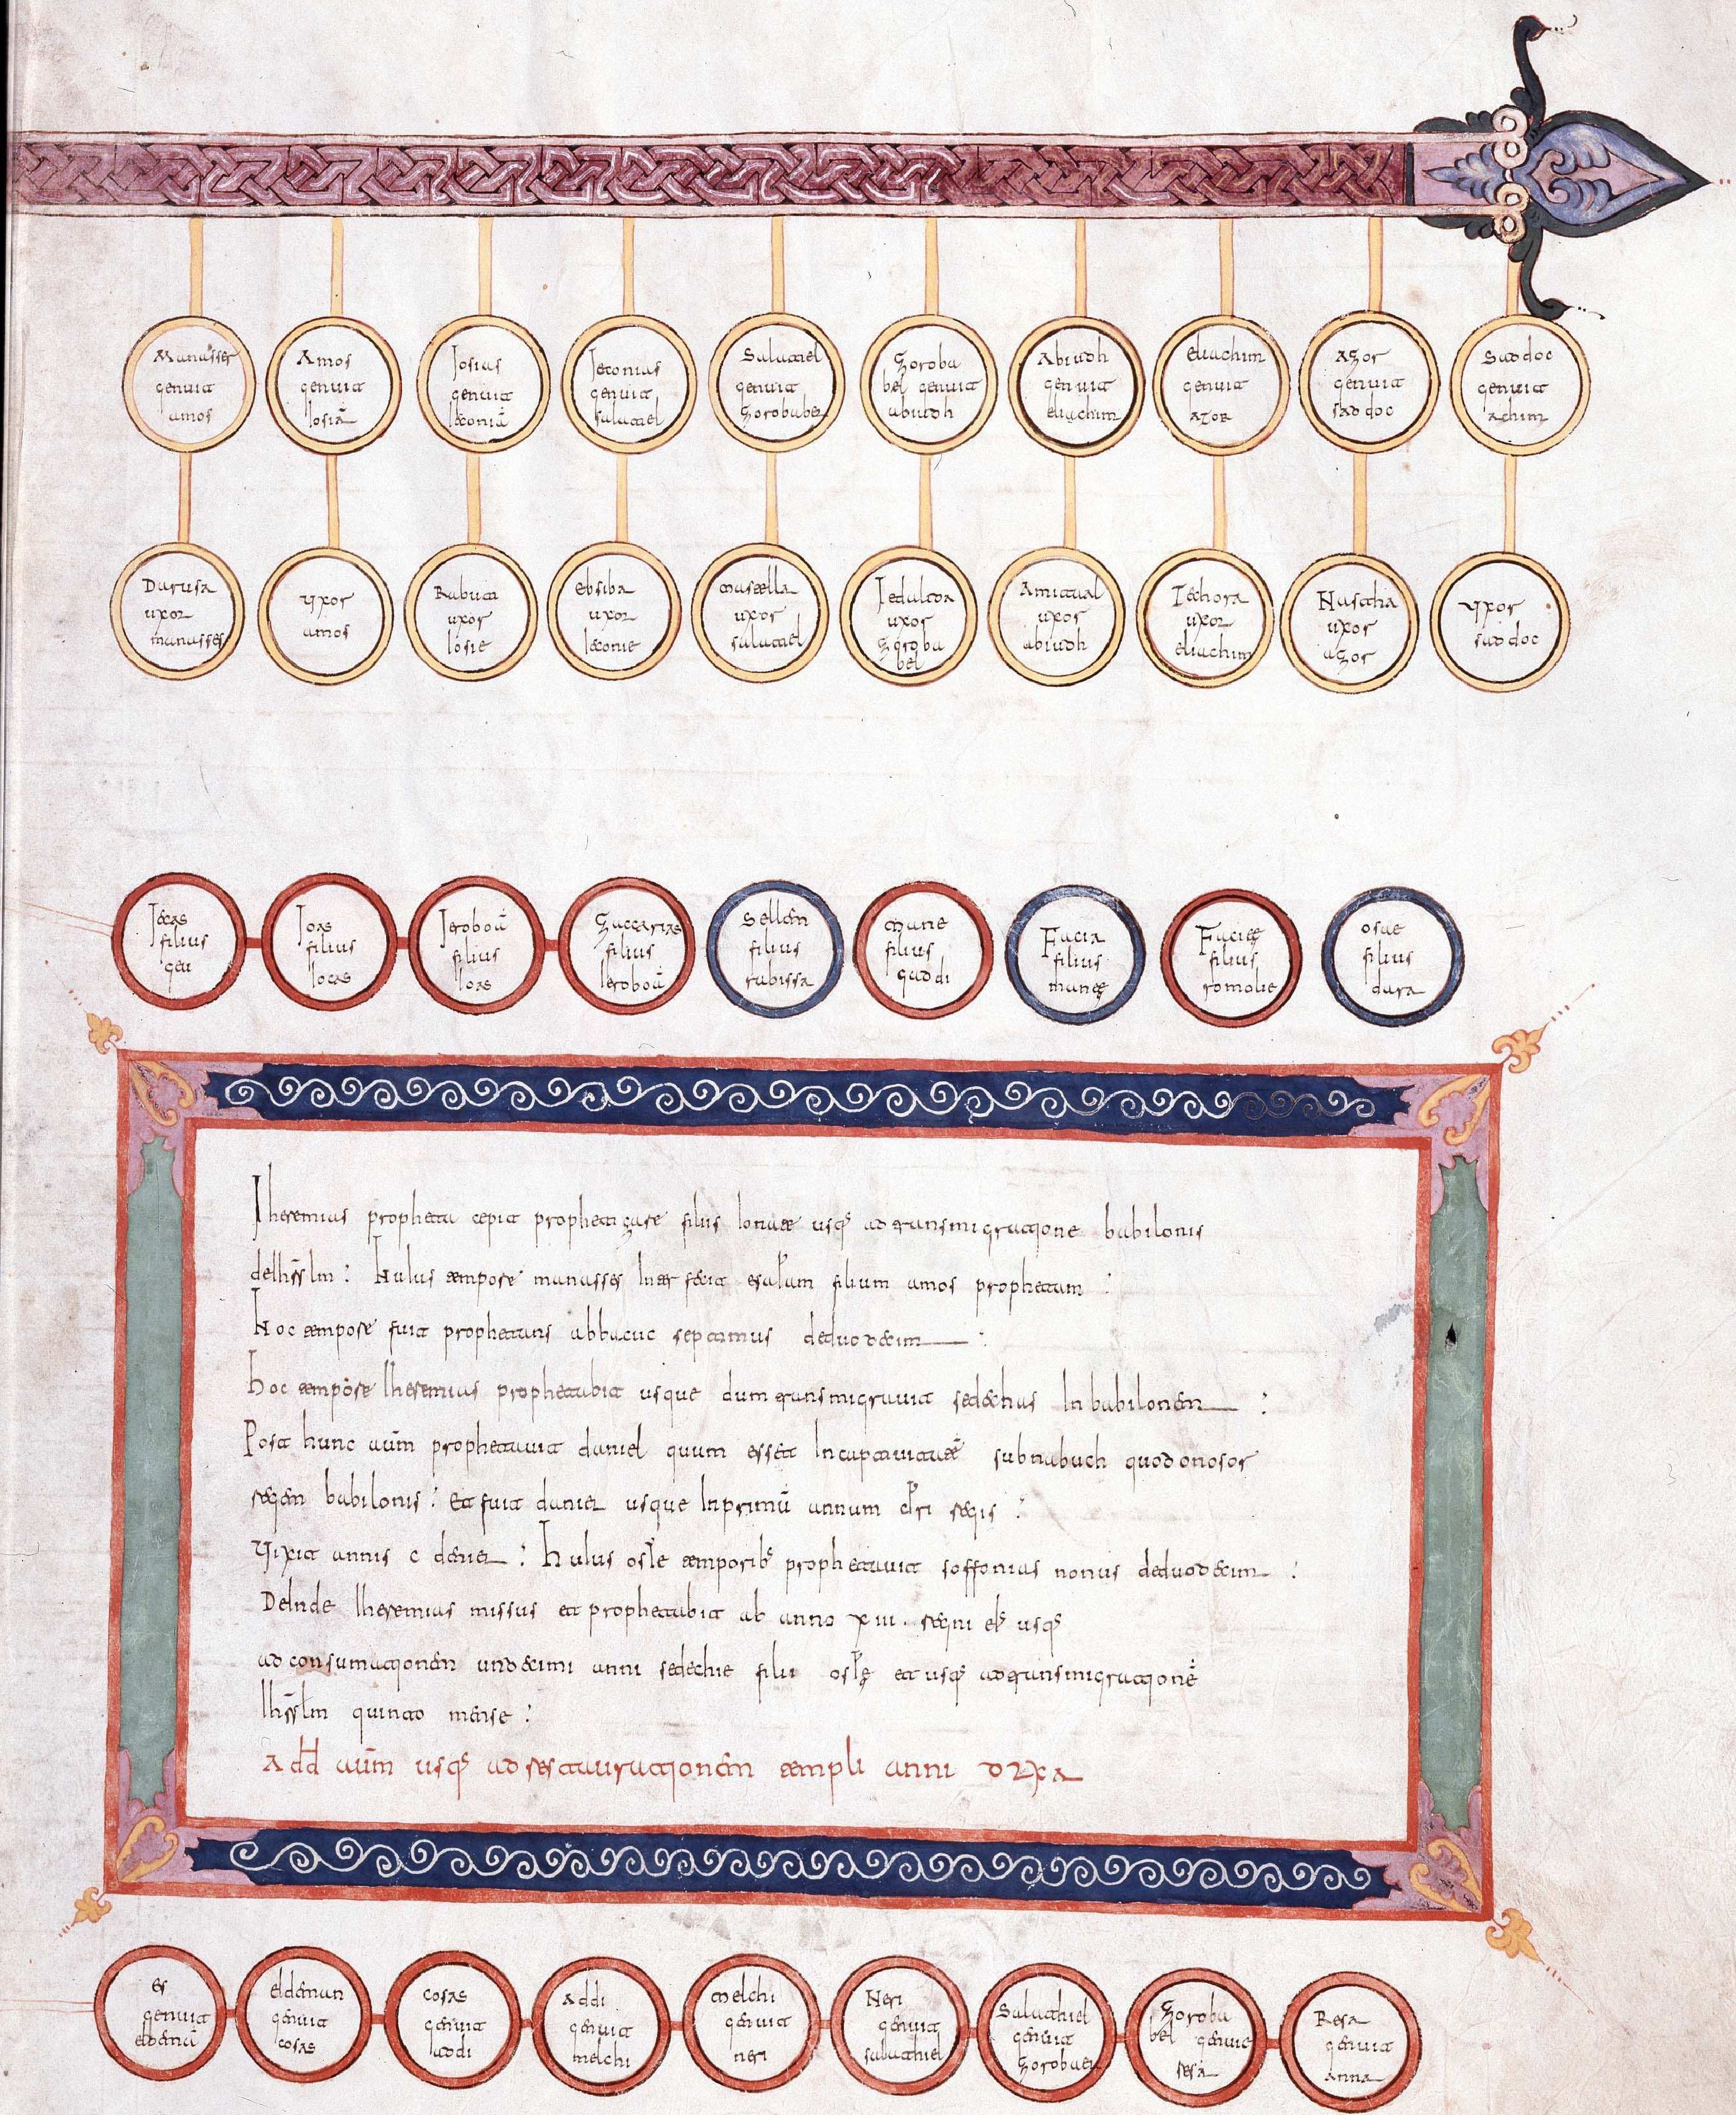 Manasses
genuit
amos
Amos
genuit
Iosiā
Iosias
genuit
Ieconiā
Ieconias
genuit
salatiel
Salatiel
genuit
Zorobabel
Zoroba
bel genuit
abiudh
Abiudh
genuit
eliachim
eliachim
genuit
azor
Azor
genuit
saddoc
Saddoc
genuit
achim
Darusa
uxor
manasses
Uxor
amos
Rabuat
uxor
Iosie
Ebsiba
uxor
Ieconie
Musetella
uxor
salatiel
Iedultoa
uxor
Zoroba
bel
Amictual
uxor
abiudh
Techora
uxor
eliachim
Nastha
uxor
azor
Uxor
saddoc
filius
geu
Ioas
filius
Ieroboā
filius
Ioas
Zaccarias
filius
Ieroboā
Sellem
filius
rabissa
mane
filius
quodi
Facia
filius
manee
Faciee
filius
romolie
osae
filius
dara
Iheremias propheta cepit prophetizare filius usqꝫ ad transmigratione babilonis
Huius tempore manasses Interfecit esaiam filium amos prophetam :
Hoc tempore fuit prophetans abbacuc septimus deduodecim :
hoc tempore Iheremias prophetabit usque dum transmigravit sedechias In babilonem :
Post hunc autm prophetavit daniel quum esset In captivitate sub nabuch quodonosor
regem babilonis : et fuit daniel usque In primū annum regis :
Vixit annis c : huius temporibꝫ prophetavit soffonias nonus deduodecim :
DeInde Iheremias missus et prophetabit ab anno xiii. regni usqꝫ
ad consumationem undecimi anni sedechie filii et usqꝫ ad transmigrationē
Ihrslm quinto mense :
autm usqꝫ ad restaurationem templi anni
es
genuit
eldemā
eldeman
genuit
cosas
cosas
genuit
addi
Addi
genuit
melchi
melchi
genuit
neri
Neri
genuit
salathiel
Salathiel
genuit
Zorobabel
Zoroba
bel genuit
resa
Resa
genuit
anna